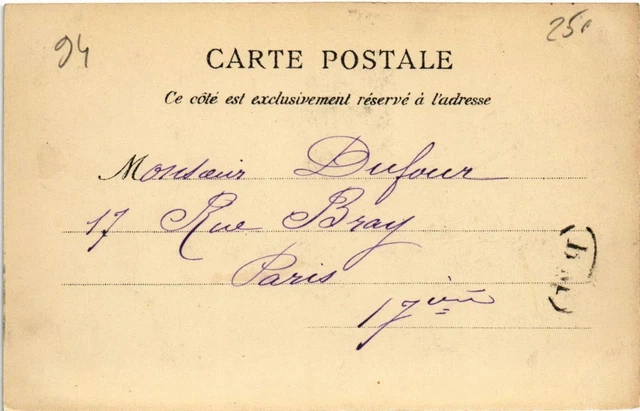 94
25c
CARTE POSTALE
Ce côté est exclusivement réservé à l'adresse
Monsieur Dufour
17 Rue Bray
Paris
17ième